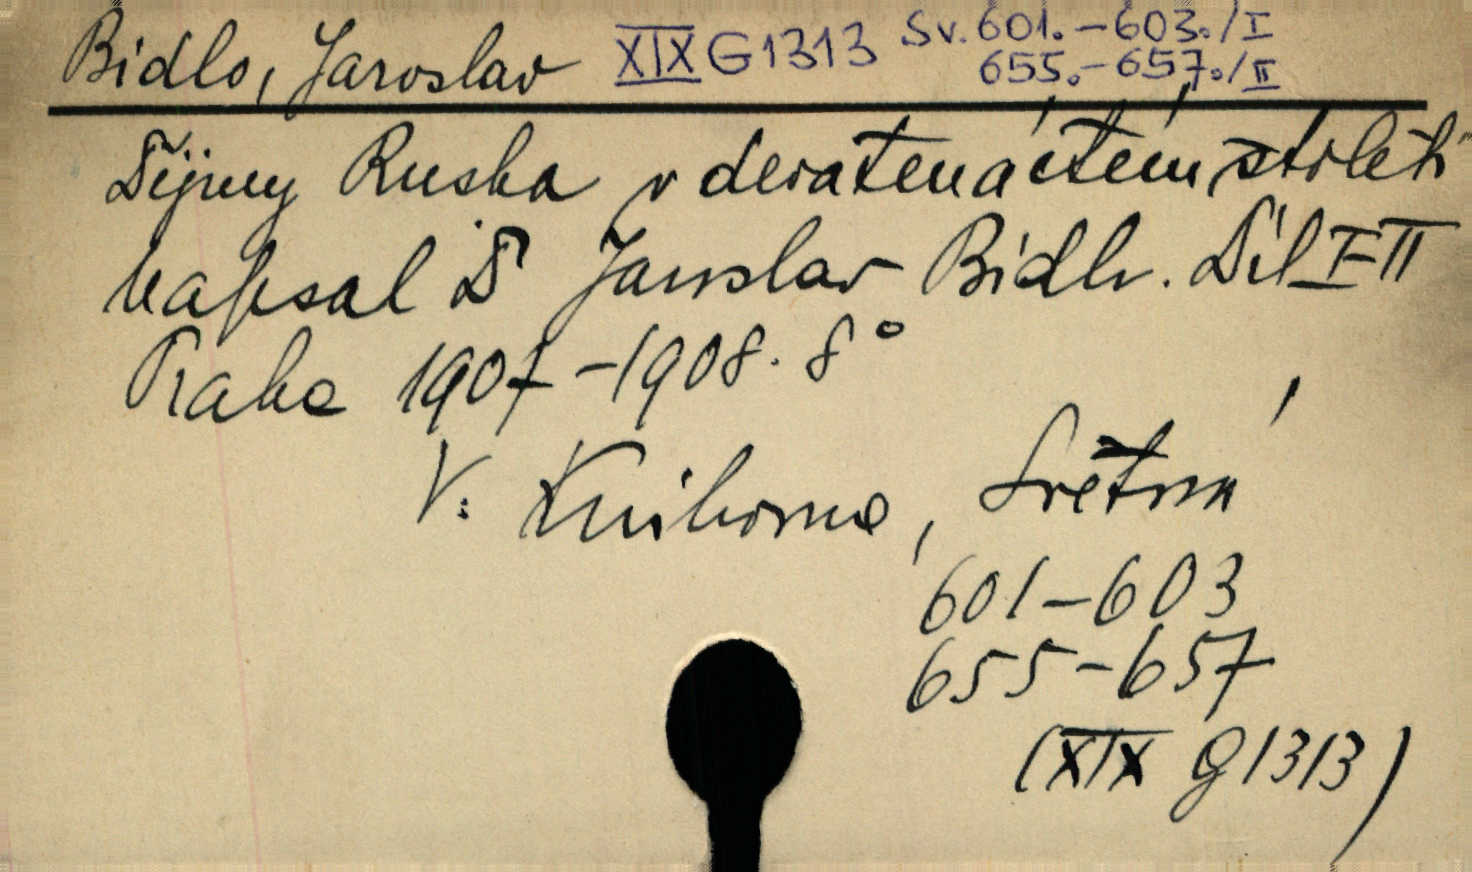 Bidlo, Jaroslav XIX G 1313 Sv. 601.-603./I
655.-657./II
Dějiny Ruska v devatenáctém století
napsal Dr Jaroslav Bidlo. Díl I-II
Praha 1907-1908. 8°
V: Knihovna, Světová
601-603
655-657
(XIX G 1313)